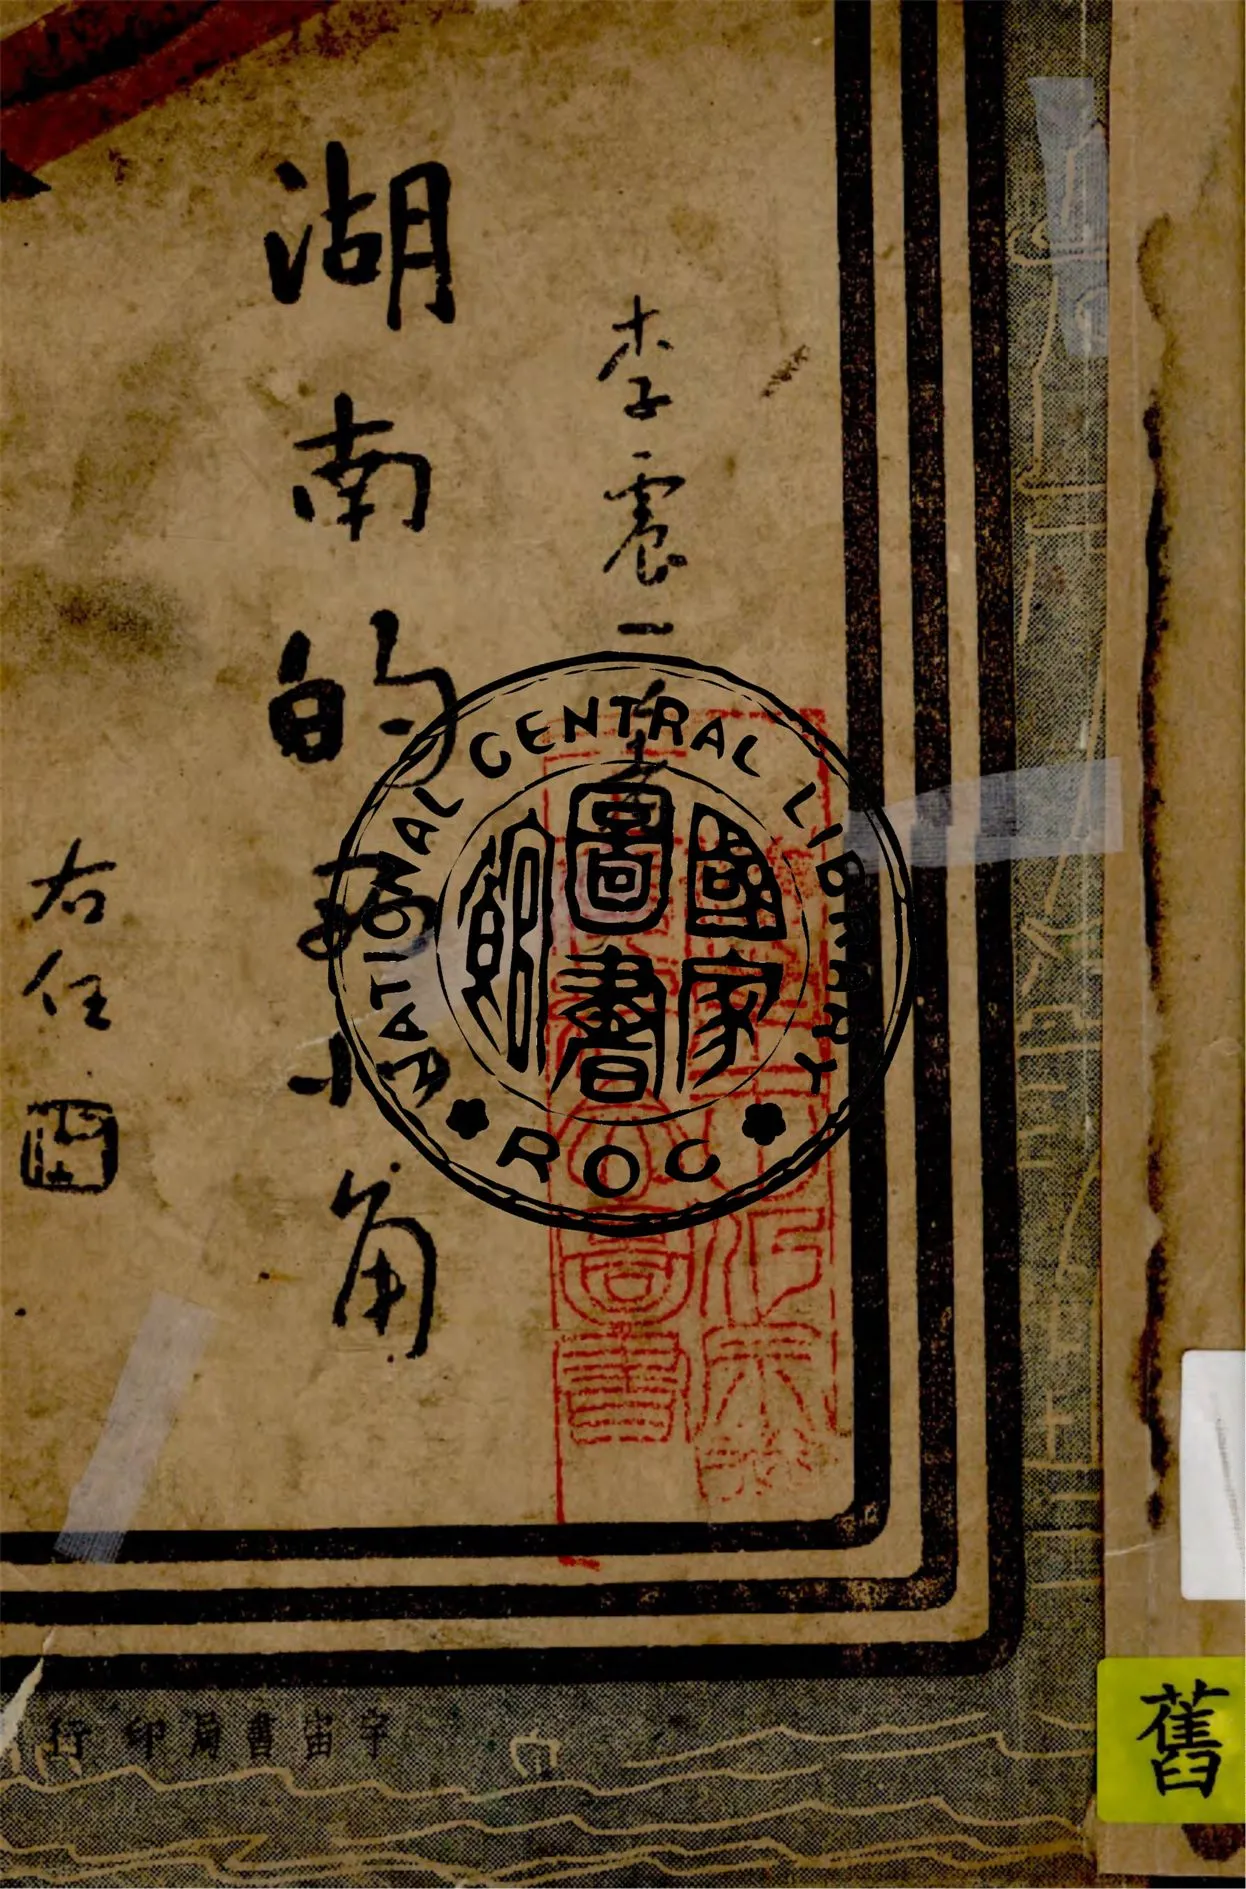 李震一著
湖南的西北角
右任
宇宙書局印行
NATIONAL CENTRAL LIBRARY
ROC
國家圖書館
舊